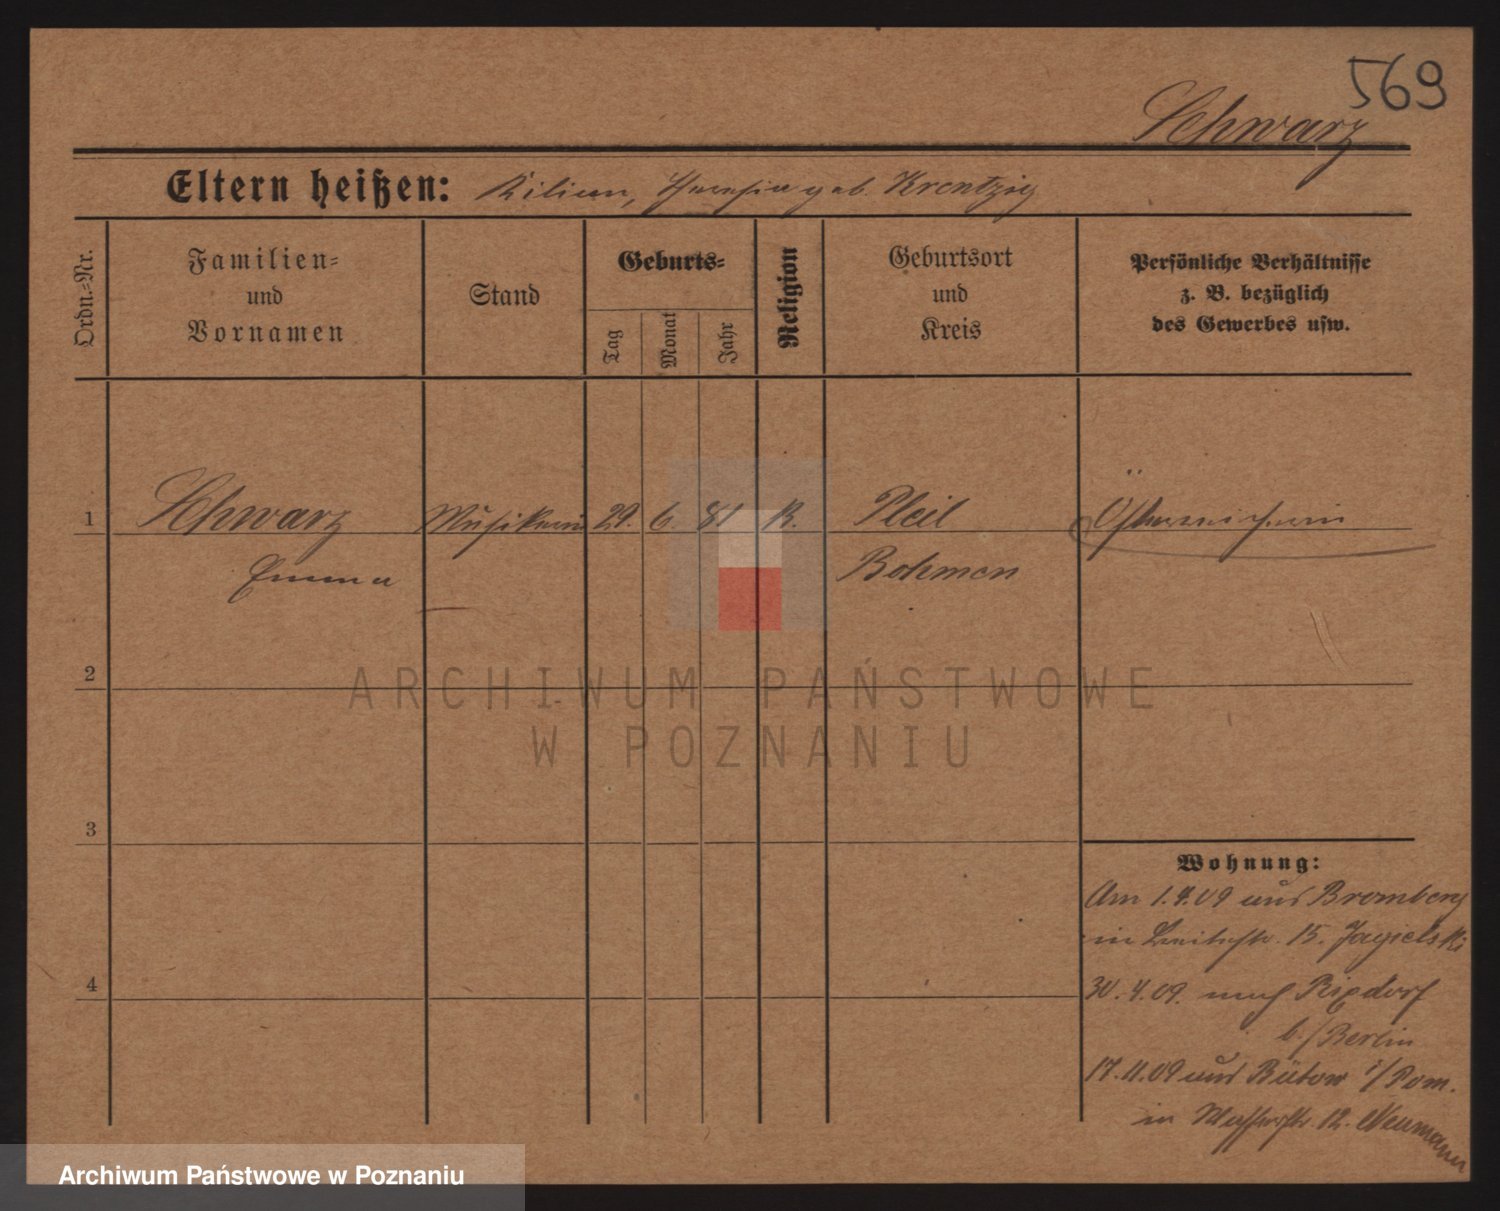 569
Schwarz
Eltern heißen: Kilian, Theresia geb. Krentzig
Ordn.-Nr.
Familien-
und
Vornamen
Stand
Geburts-
Tag
Monat
Jahr
Religion
Geburtsort
und
Kreis
Persönliche Verhältnisse
z. B. bezüglich
des Gewerbes usw.
1 Schwarz Musikerin 29. 6. 81 K. Pleil Österreicherin
Emma Bohmen
2
3
4
Wohnung:
Am 1.4.09 aus Bromberg
in 15. Jagielski
30.4.09. nach Rixdorf
b./Berlin
17.11.09 aus Bütow i/Pom.
in 12. Neumann
ARCHIWUM PAŃSTWOWE
W POZNANIU
Archiwum Państwowe w Poznaniu